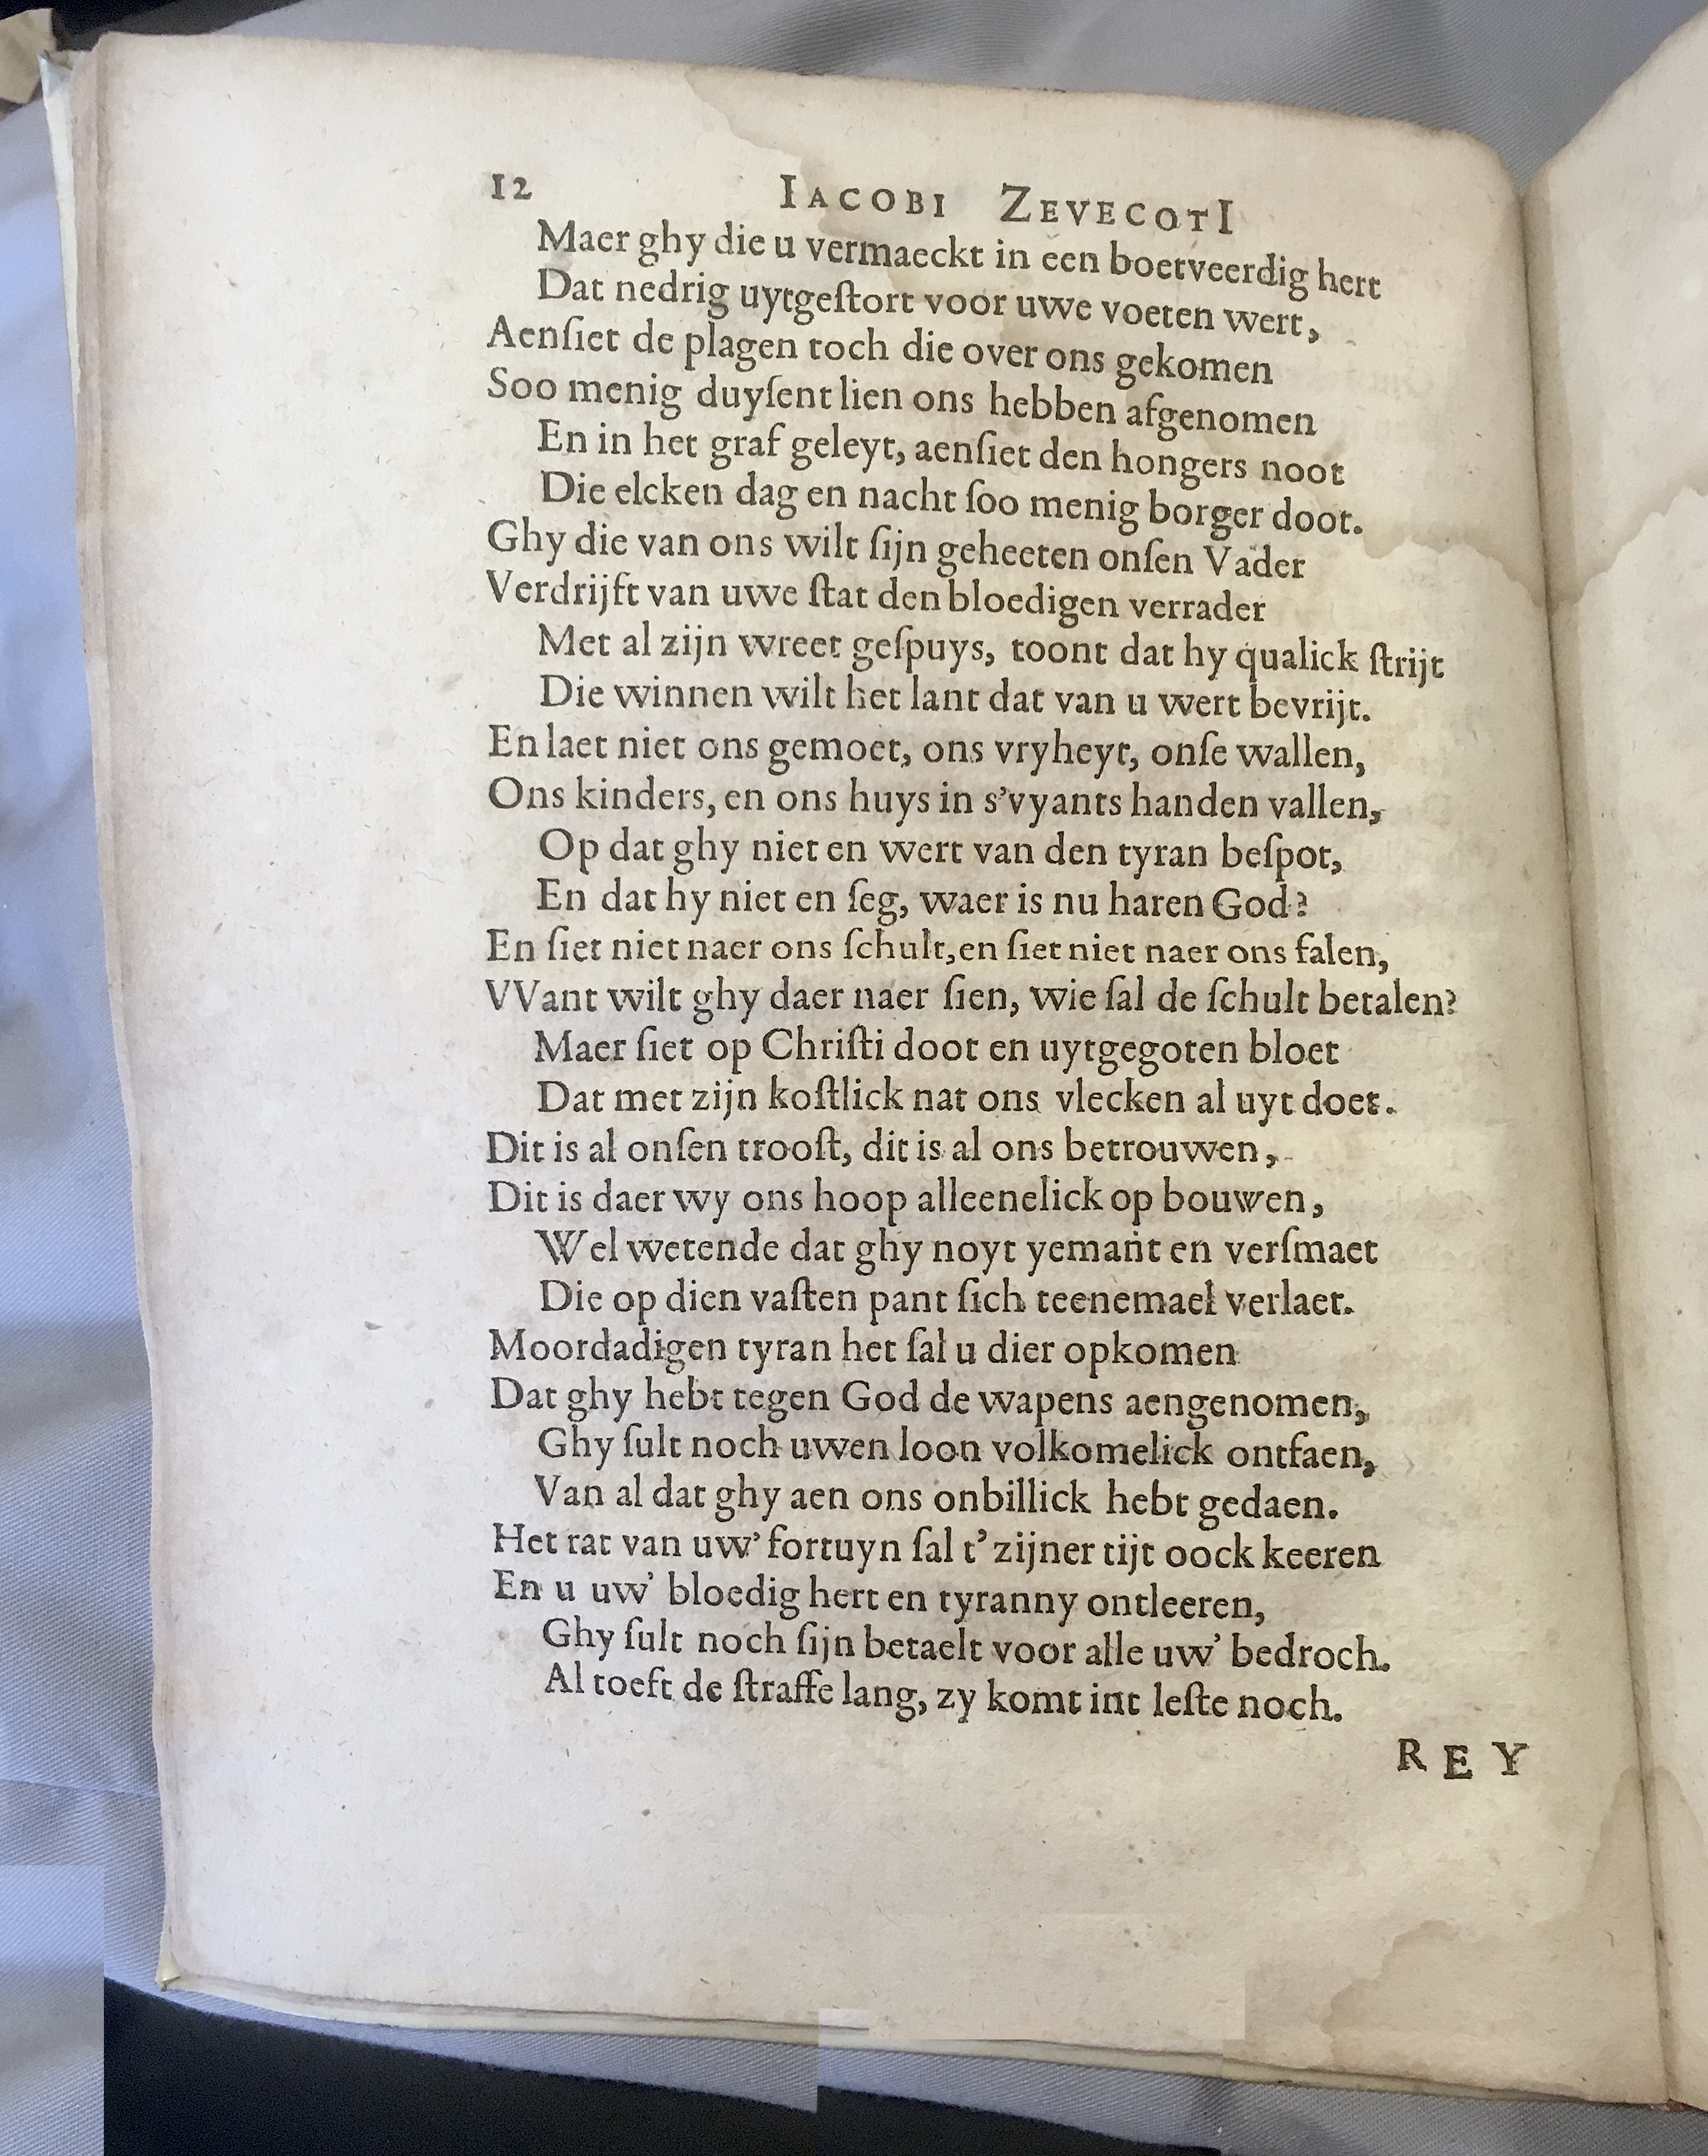 12 IACOBI ZEVECOTI
Maer ghy die u vermaeckt in een boetveerdig hert
Dat nedrig uytgeſtort voor uwe voeten wert,
Aenſiet de plagen toch die over ons gekomen
Soo menig duyſent lien ons hebben afgenomen
En in het graf geleyt, aenſiet den hongers noot
Die elcken dag en nacht ſoo menig borger doot.
Ghy die van ons wilt ſijn geheeten onſen Vader
Verdrijft van uwe ſtat den bloedigen verrader
Met al zijn wreet geſpuys, toont dat hy qualick ſtrijt
Die winnen wilt het lant dat van u wert bevrijt.
En laet niet ons gemoet, ons vryheyt, onſe wallen,
Ons kinders, en ons huys in s'vyants handen vallen,
Op dat ghy niet en wert van den tyran beſpot,
En dat hy niet en ſeg, waer is nu haren God?
En ſiet niet naer ons ſchult, en ſiet niet naer ons falen,
VVant wilt ghy daer naer ſien, wie ſal de ſchult betalen?
Maer ſiet op Chriſti doot en uytgegoten bloet
Dat met zijn koſtlick nat ons vlecken al uyt doet.
Dit is al onſen trooſt, dit is al ons betrouwen,
Dit is daer wy ons hoop alleenelick op bouwen,
Wel wetende dat ghy noyt yemant en verſmaet
Die op dien vaſten pant ſich teenemael verlaet.
Moordadigen tyran het ſal u dier opkomen
Dat ghy hebt tegen God de wapens aengenomen,
Ghy ſult noch uwen loon volkomelick ontfaen,
Van al dat ghy aen ons onbillick hebt gedaen.
Het rat van uw' fortuyn ſal t'zijner tijt oock keeren
En u uw' bloedig hert en tyranny ontleeren,
Ghy ſult noch ſijn betaelt voor alle uw' bedroch.
Al toeft de ſtraffe lang, zy komt int leſte noch.
REY